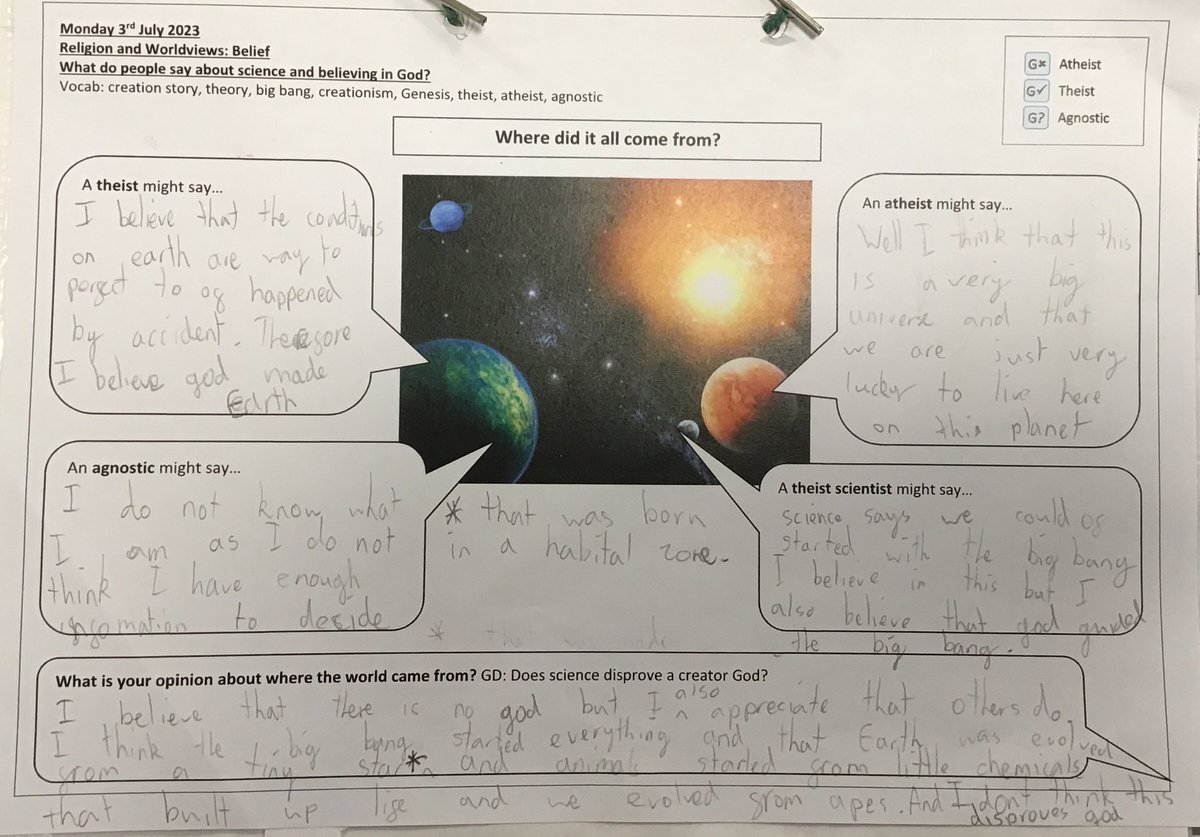 Monday 3rd July 2023
Religion and Worldviews: Belief
What do people say about science and believing in God?
Vocab: creation story, theory, big bang, creationism, Genesis, theist, atheist, agnostic
G× Atheist
G✓ Theist
G? Agnostic
Where did it all come from?
A theist might say...
I believe that the conditions
on earth are way to
perfect to of happened
by accident. Therefore
I believe god made
Earth
An atheist might say...
Well I think that this
is a very big
universe and that
we are just very
lucky to live here
on this planet
An agnostic might say...
I do not know what
I am as I do not
think I have enough
infomation to decide
* that was born
in a habital zone.
A theist scientist might say...
science says we could of
started with the big bang
I believe in this but I
also believe that god guided
the big bang.
* that
What is your opinion about where the world came from? GD: Does science disprove a creator God?
I believe that there is no god but I also appreciate that others do.
I think the big bang started everything and that Earth was evolved
from a tiny star* and animals started from little chemicals
that built up life and we evolved from apes. And I dont think this
disproves god